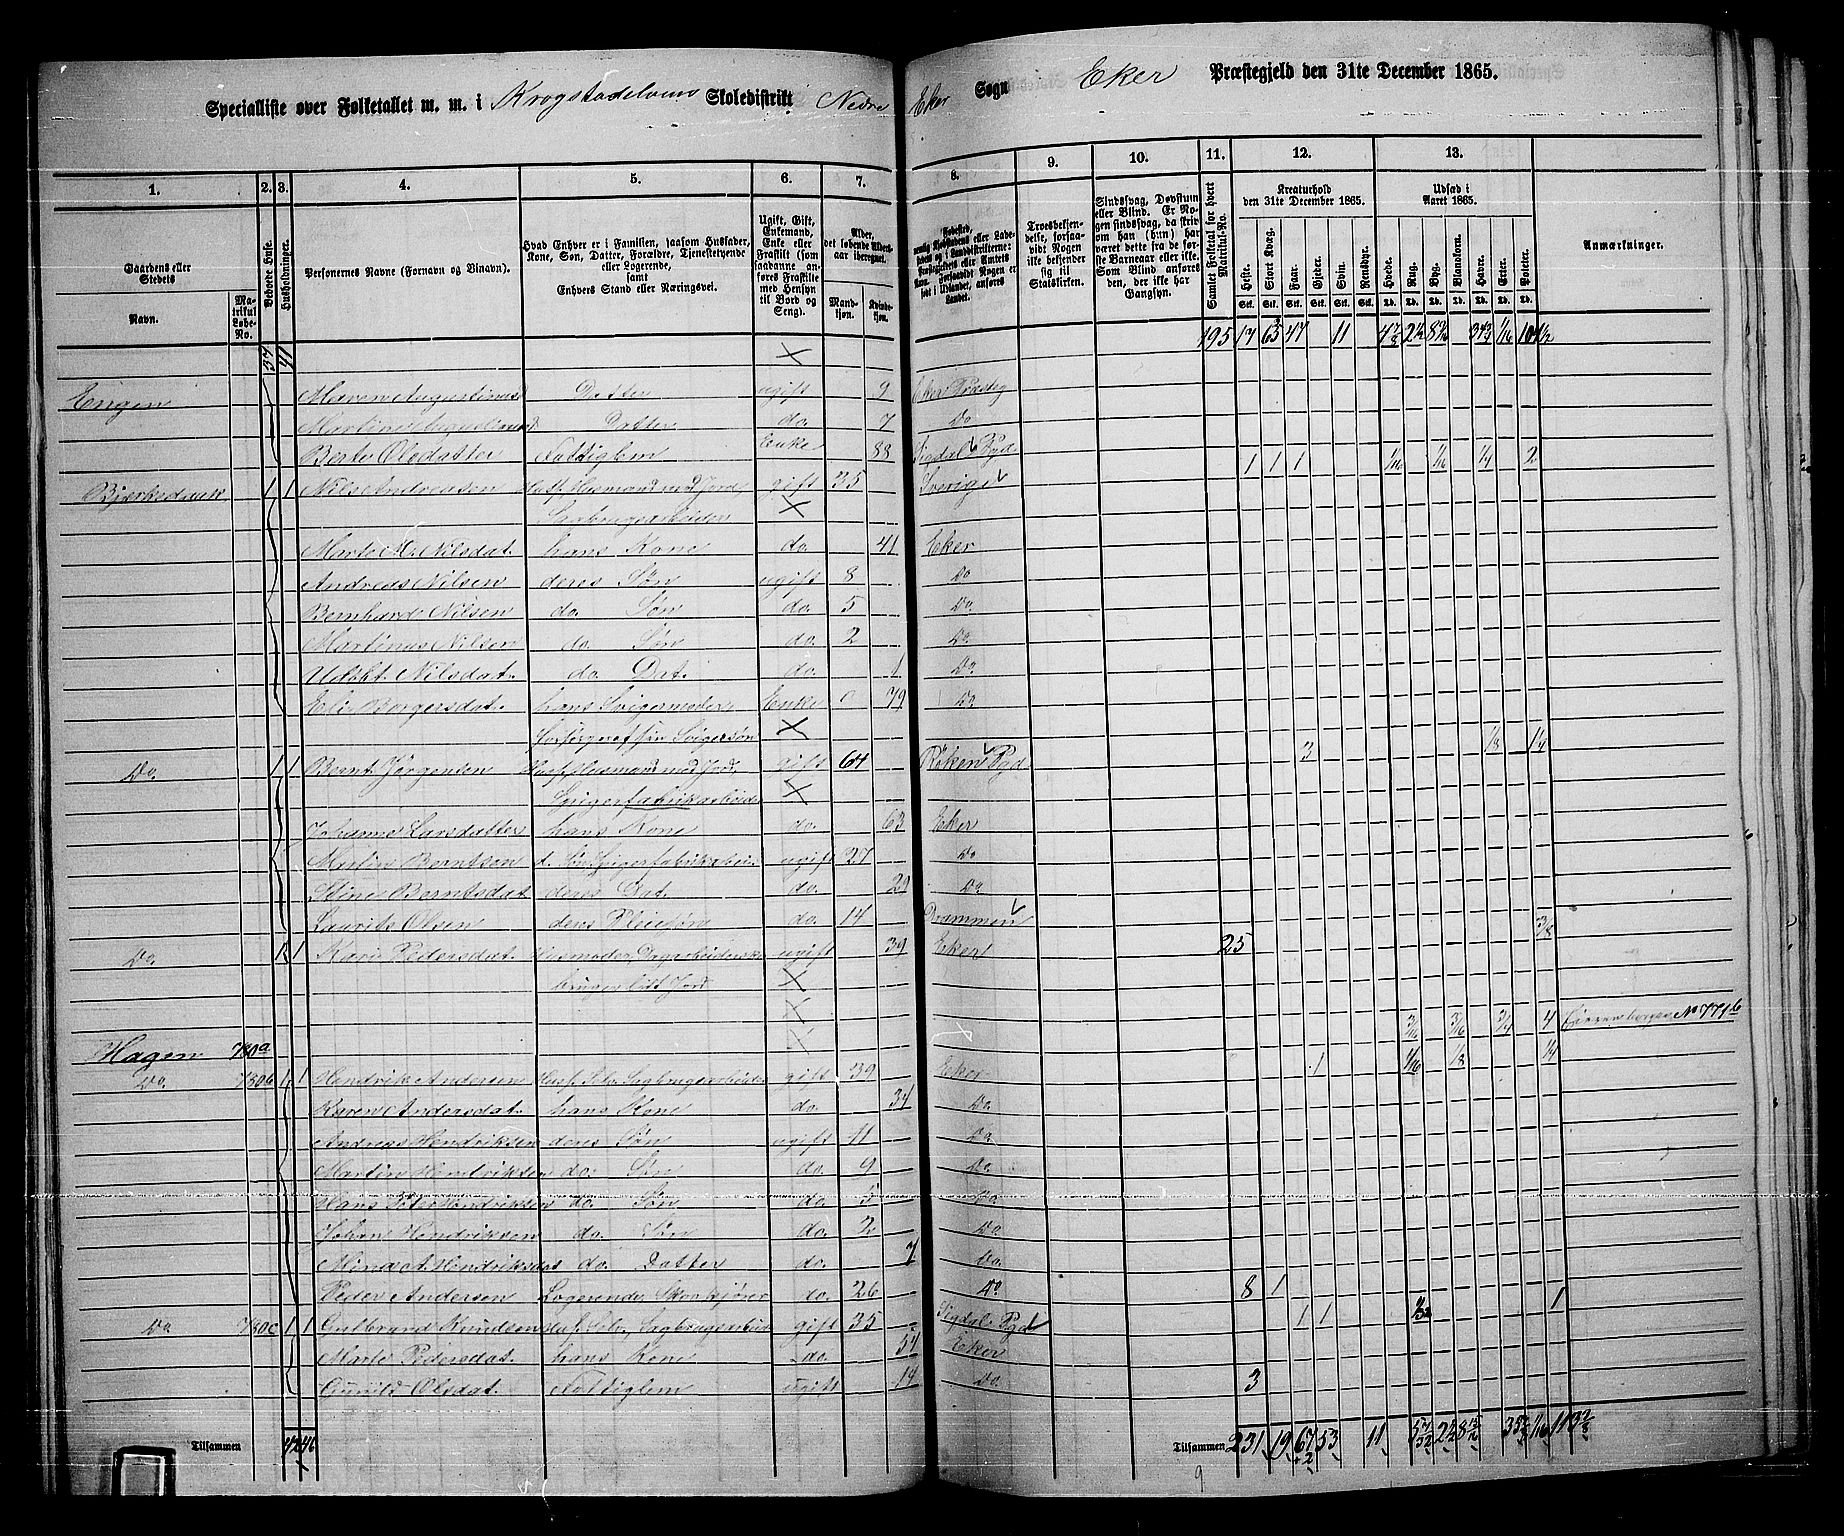 Specialliste over Folketallet m. m. i Krogstadelvens Skoledistrikt Nedre Eker Sogn Eker Præstegjeld den 31te December 1865.
1. 2. 3. 4. 5. 6. 7. 8. 9. 10. 11. 12. 13.
Gaardens eller Stedets Navn. Matrikul Løbe-No. Beboede Huse. Husholdninger. Personernes Navne (Fornavn og Tilnavn). Hvad Enhver er i Familien, saasom Husfader, Kone, Søn, Datter, Forældre, Tjenestetyende eller Logerende, samt Enhvers Stand eller Næringsvei. Ugift, Gift, Enkemand, Enke eller Fraskilt (som saadanne anføres Fraskilte med Hensyn til Bord og Seng). Alder, det løbende Alders-aar iberegnet. Mandkjøn. Kvindekjøn.
Troesbekjendelse, forsaavidt Nogen ikke bekjender sig til Statskirken. Sindssvag, Døvstum eller Blind. Er Nogen sindssvag, da skrives om han (hun) har været dette fra de første Barneaar eller ikke. Som Blind anføres den, der ikke har Gangsyn. Samlet Folketal for hvert Matrikul-No. Kreaturhold den 31te December 1865. Heste. Stort Kvæg. Faar. Gjeder. Svin. Rensdyr. Udsæd i Aaret 1865. Hvede. Rug. Byg. Blandkorn. Havre. Erter. Poteter. Anmærkninger.
37 41 195 17 65 47 11
Engen Maren Augustinusd Datter ugift 9 Eker Præsteg
Martine Augustinusd Datter do. 7 Do
Beate Olsdatter Fattiglem Enke 88 Sigdal Pgd. 1 1 1 1/16 1/16 1/4 2
1 1 Nils Andreasen Husf. Husmand med Jord, gift 35 Sverige
Sagbrugsarbeider
Marte M. Nilsdat. hans Kone do. 41 Eker
Andreas Nilsen deres Søn ugift 8 Do
Bernhard Nilsen do. Søn do. 5 Do.
Martinus Nilsen do. Søn do. 2 Do.
Nilsdat. do. Dat. do. 1 Do.
Eli Borgersdat. hans Svigermoder Enke 0 79 Do
Forsørget af sin Svigersøn 3 1/8 1/4
Do. 1 1 Bernt Jørgensen Husf. Husmand med Jord, gift 64 Røken Pgd
Spigerfabrikarbeider
Johanne Larsdatter hans Kone do. 63 Eker
Martin Berntsen d. Søn Spigerfabrikarbei. ugift 27 Do
Stine Berntsdat. deres Dat. do. 29 Do
Laurits Olsen deres Pleiesøn do. 14 Drammen 3/8
Do. 1 1 Kari Pedersdat. Husmoder, Dagarbeiderske ugift 39 Eker 25
bruger lidt Jord
3/16 3/16 3/4 4 No 771b
Hagen 780a 1 1/16 1/8 1/4
Do. 780b 1 1 Hendrik Andersen Husf. Selv. Sagbrugsarbeider gift 39 Eker
Karen Andersdat. hans Kone do. 34 Do.
Andreas Hendriksen deres Søn ugift 11 Do.
Martin Hendriksen do. Søn do. 9 Do.
Hans Peter Hendriksen do. Søn do. 5 Do.
Johan Hendriksen do. Søn do. 2 Do.
Mina A. Hendriksdat do. Datter do. 7 Do.
Peder Andersen Logerende, do. 26 Do 8 1 1
Do 780c 1 1 Gulbrand Knudsen Husf. Selv., Sagbrugsarbeid gift 35 Sigdal Pgd 1 1
Marte Pedersdat. hans Kone do. 54 Eker
Gunild Olsdat. Fattiglem ugift 14 Do. 3
Tilsammen 42 46 Tilsammen 231 19 67 53 11